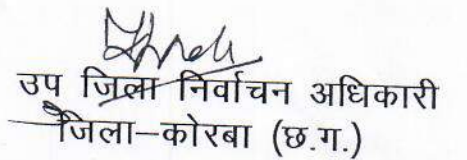 उप जिला निर्वाचन अधिकारी
जिला–कोरबा (छ.ग.)